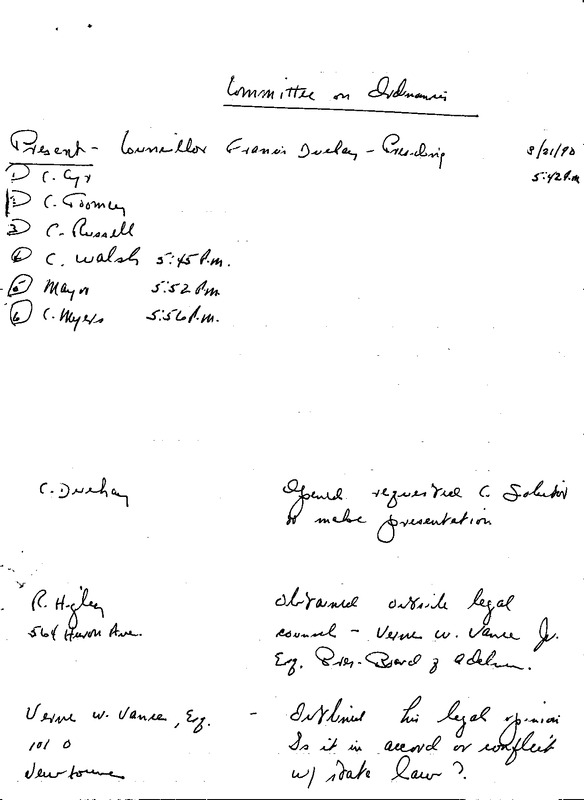 Committee on Ordinances
Present - Councillor Francis Duehay - Presiding
8/21/90
5:42 P.m
1) C. Cyr
2) C. Toomey
3) C. Russell
4) C. Walsh 5:45 P.m.
5) Mayor 5:52 P.m
6) C. Myers 5:56 P.m.
C. Duehay
Opened requested C. Solicitor
to make presentation
R. Higley
564 Huron Ave.
obtained outside legal
counsel - Verne W. Vance Jr.
Esq. Pres. Board of Aldermen.
Verne W. Vance, Esq. - Outlined his legal opinion
101 O
Is it in accord or conflict
w/ state law?